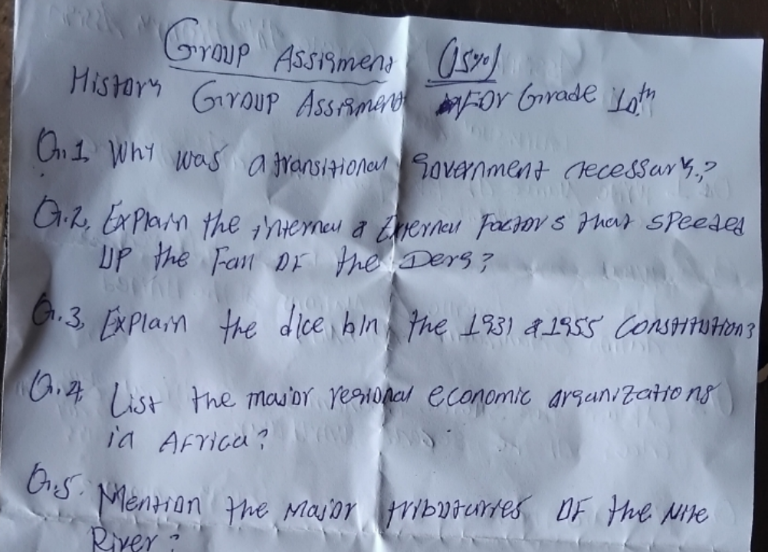 Group Assignment (15%)
History Group Assignment For Grade 10th
Q.1, Why was a transitional government necessary?
Q.2, Explain the internal & External Factors that speeded
up the Fall OF the Derg?
Q.3, Explain the dice b/n the 1931 & 1955 Constitution?
Q.4 List the major regional economic organizations
in Africa?
Q.5. Mention the Major tributarries OF the Nile
River?